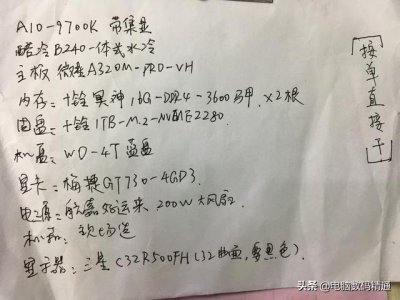 A10-9700K 带集显
酷冷B240一体式水冷
主板 微星A320M-PRO-VH
内存:十铨冥神16G-DDR4-3600马甲.×2根
固盘:十铨1TB-M.2-NVME2280.
机械:WD-4T蓝盘
显卡:梅捷GT730-4GD3.
电源:航嘉好运来.200W大风扇
机箱:现场选
显示器:三星C32R500FH(32曲面,要黑色).
接单直接干
头条@电脑数码精通